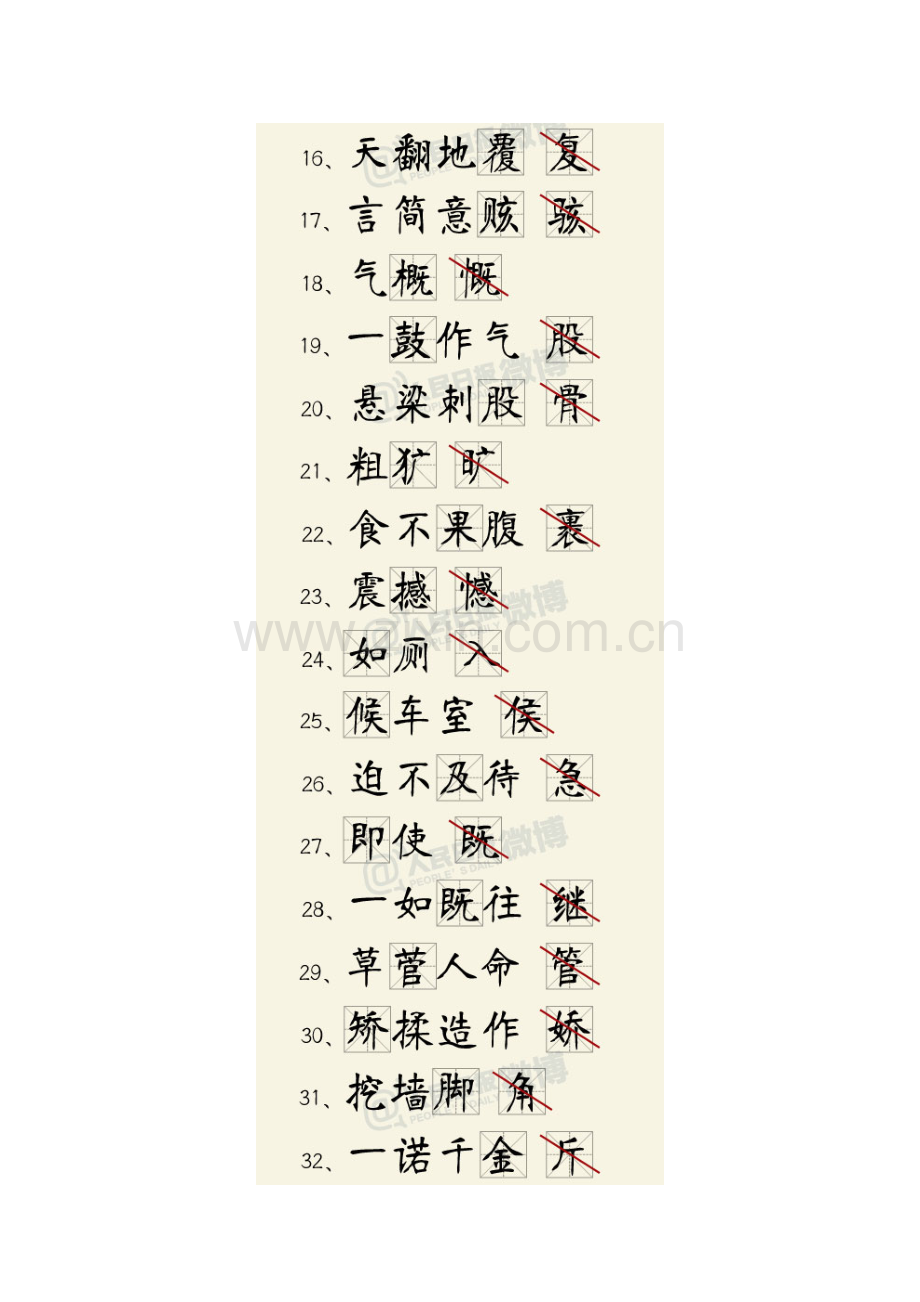 16、天翻地覆 复
17、言简意赅 骇
18、气概 慨
19、一鼓作气 股
20、悬梁刺股 骨
21、粗犷 旷
22、食不果腹 裹
23、震撼 憾
24、如厕 入
25、候车室 侯
26、迫不及待 急
27、即使 既
28、一如既往 继
29、草菅人命 管
30、矫揉造作 娇
31、挖墙脚 角
32、一诺千金 斤
@人民日报微博
PEOPLE'S DAILY